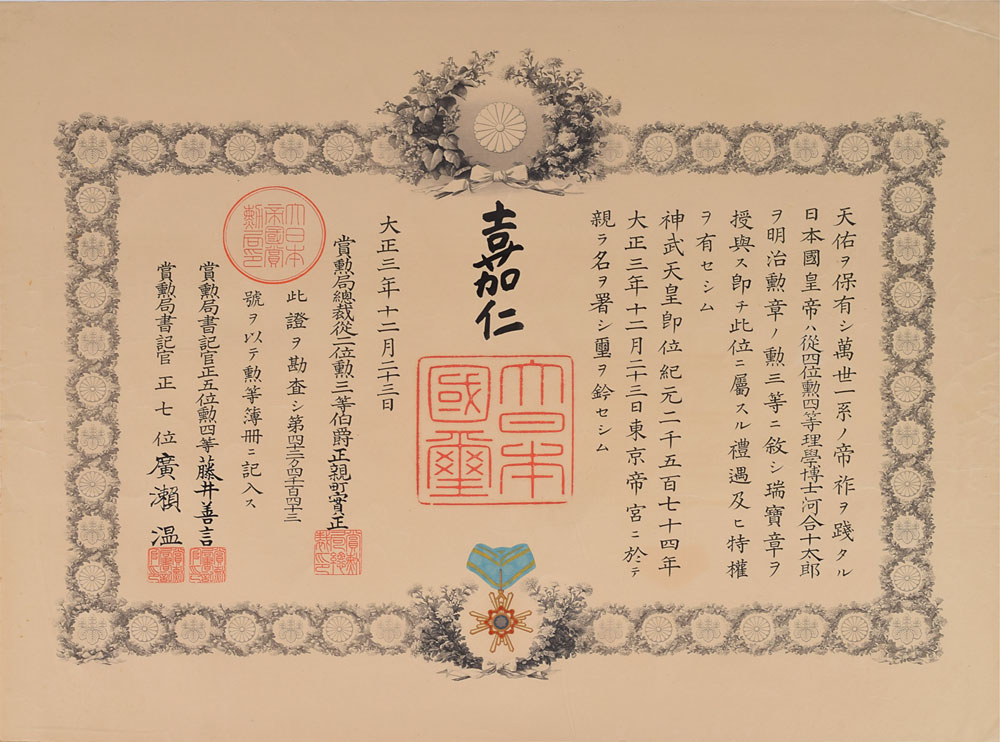 天佑ヲ保有シ萬世一系ノ帝祚ヲ踐タル
日本國皇帝ハ從四位勲四等理學博士河合十太郎
ヲ明治勲章ノ勲三等ニ敘シ瑞寶章ヲ
授與ス卽チ此位ニ屬スル禮遇及ヒ特權
ヲ有セシム
神武天皇卽位紀元二千五百七十四年
大正三年十二月二十三日東京帝宮ニ於テ
親ラ名ヲ署シ璽ヲ鈐セシム
嘉仁
大日本
國璽
大正三年十二月二十三日
賞勲局總裁從二位勲三等伯爵正親町實正
大日本
帝國賞
勲局印
此證ヲ勘査シ第四十三万四千百四十三
號ヲ以テ勲等簿冊ニ記入ス
賞勲局書記官正五位勲四等藤井善言
賞勲局書記官正七位廣瀬温